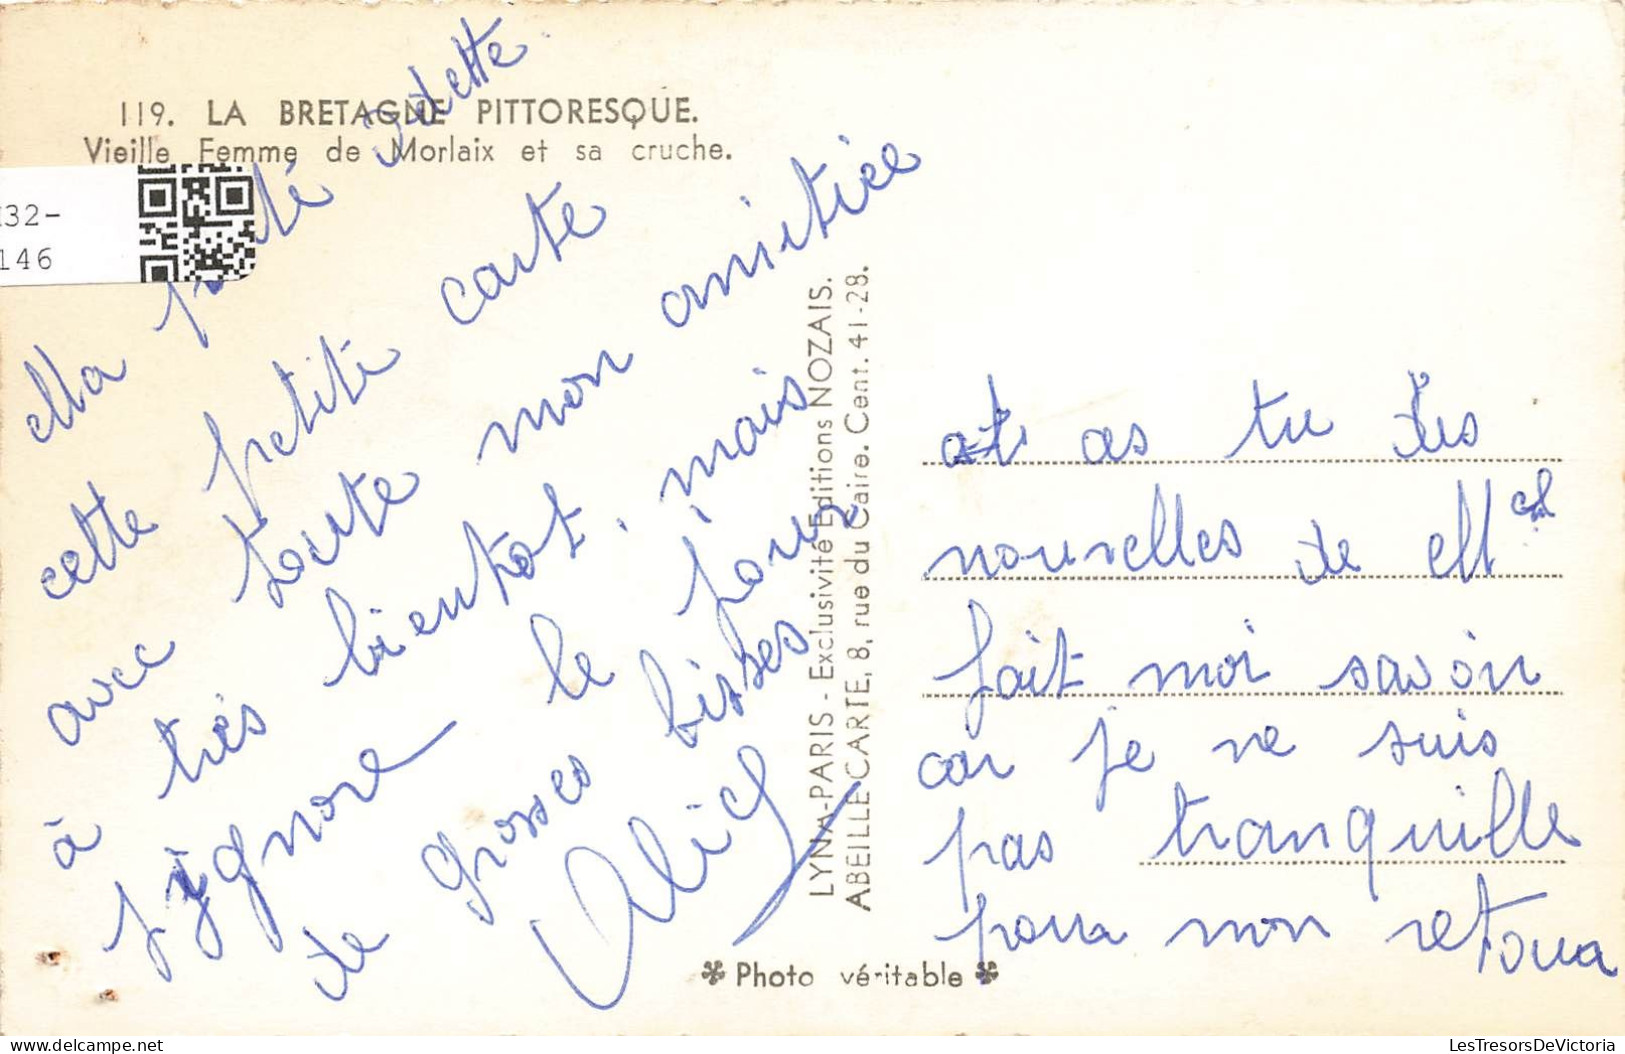 119. LA BRETAGNE PITTORESQUE.
Vieille Femme de Morlaix et sa cruche.
32-
146
ella Odette
cette petite carte
avec toute mon amitiée
à très bientot. mais
j'ignore le jour
de grosses bisses
Alice
LYNA-PARIS - Exclusivité Editions NOZAIS.
ABEILLE-CARTE, 8, rue du Caire. Cent. 41-28.
as tu des
nouvelles de ell
fait moi savoir
car je ne suis
pas tranquille
pour mon retoua
Photo véritable
LesTresorsDeVictoria
delcampe.net